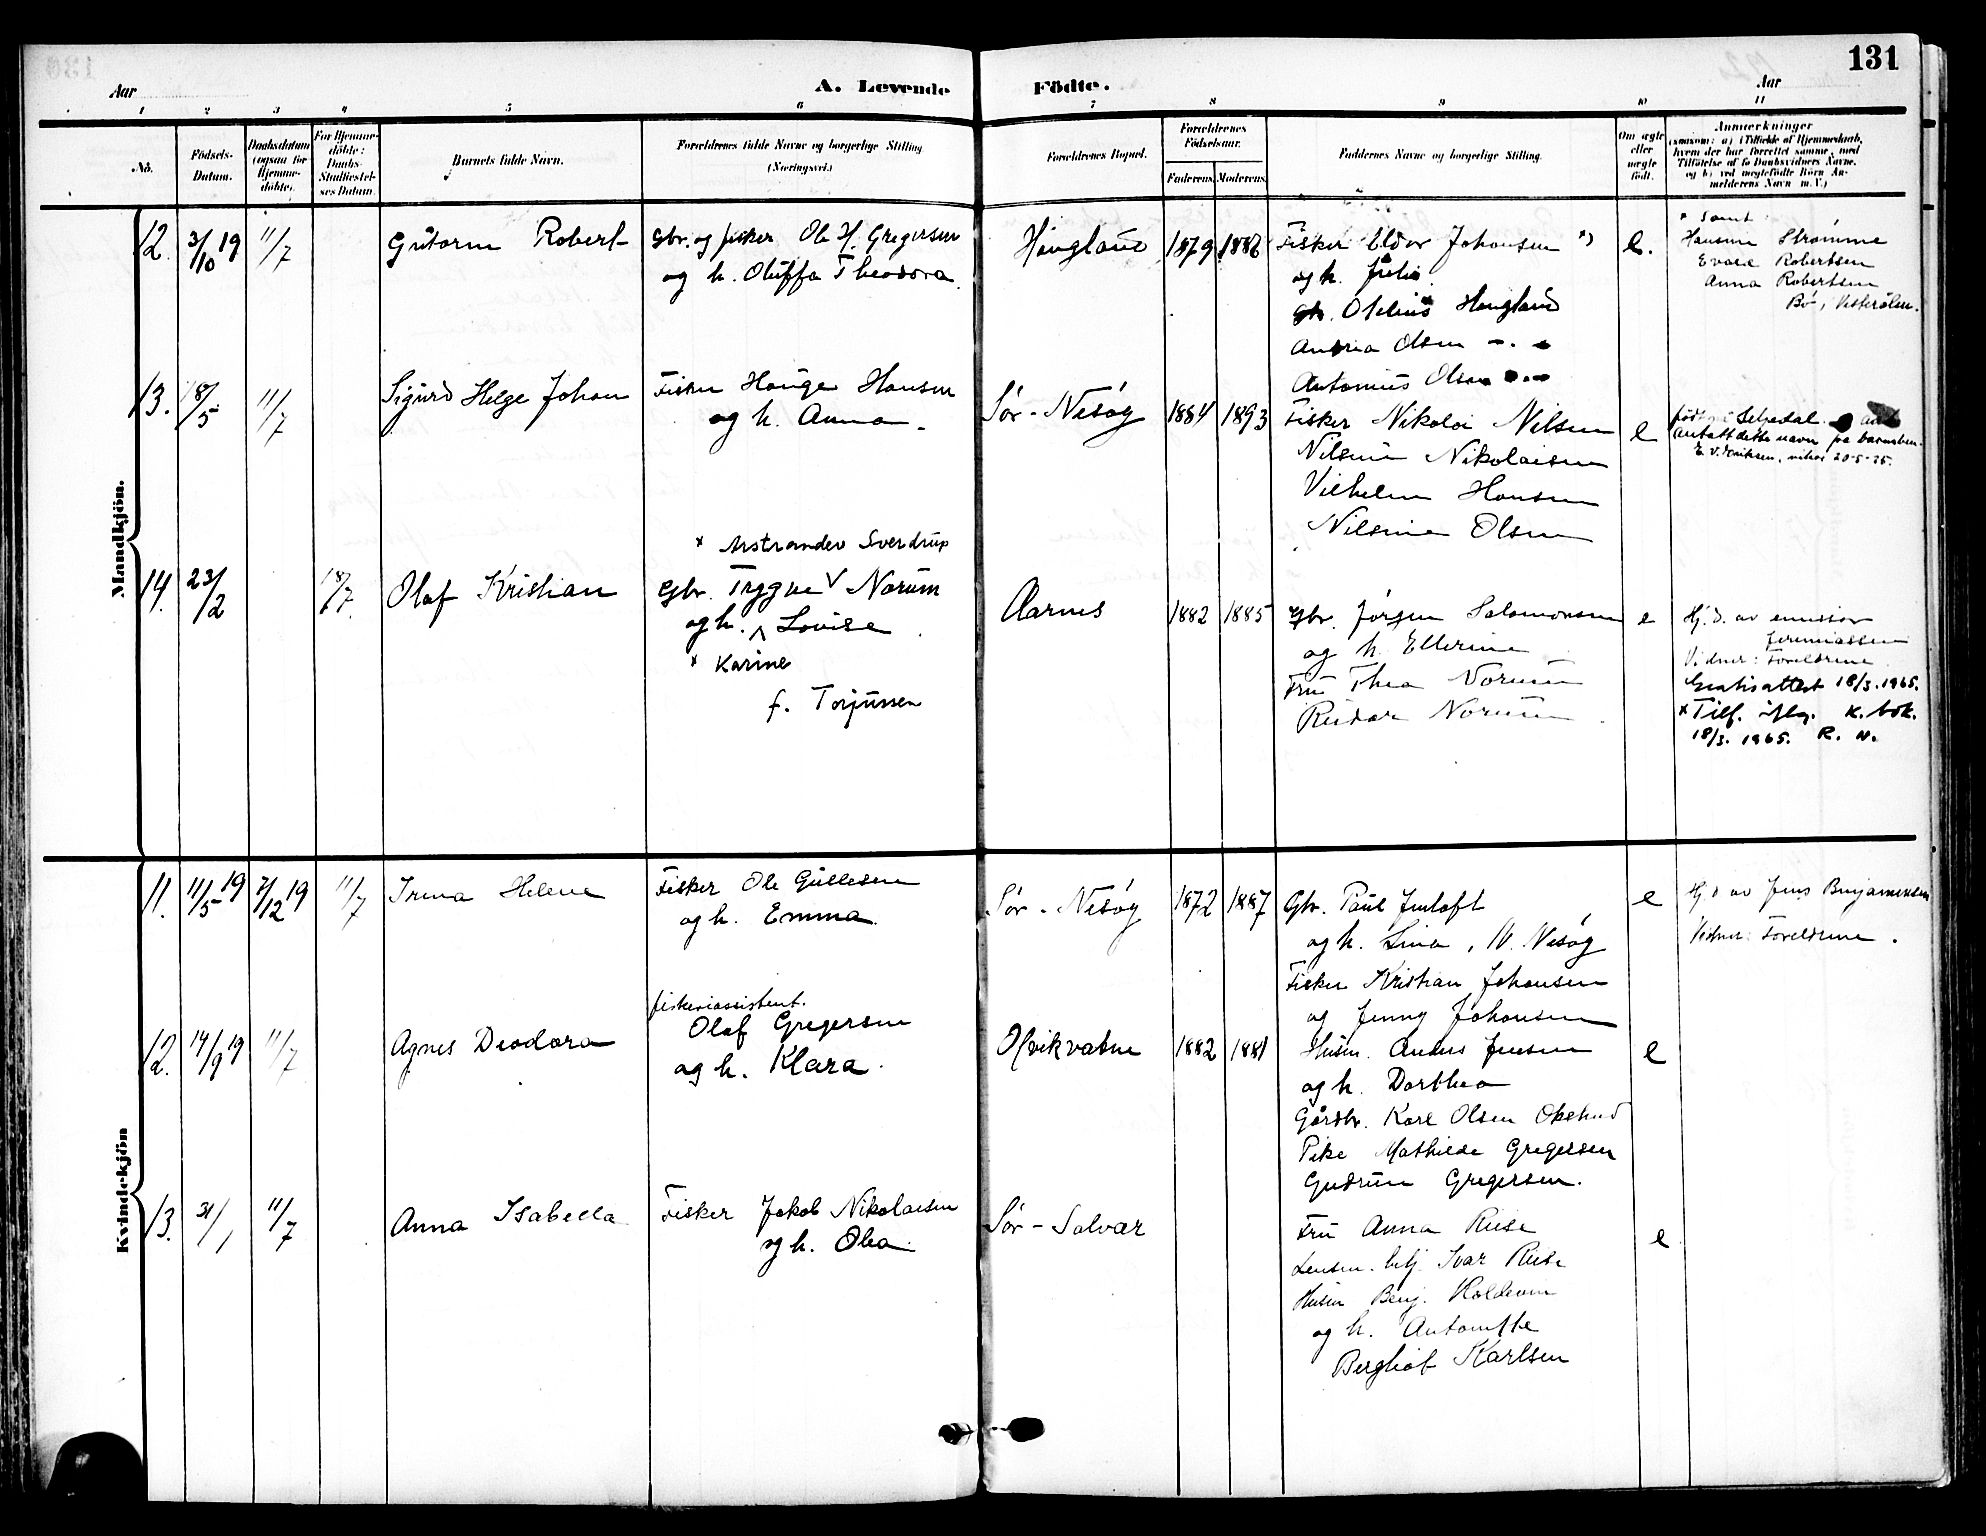 131
Aar
A. Levende Födte.
Aar
1 2 3 4 5 6 7 8 9 10 11
No.
Födsels-Datum.
Daabsdatum (ogsaa for Hjemme-döbte).
For Hjemme-döbte: Daabs-Stadfæstel-ses Datum.
Barnets fulde Navn.
Forældrenes fulde Navne og borgerlige Stilling (Næringsvei.)
Forældrenes Bopæl.
Forældrenes Födselsaar.
Faderens. Moderens.
Faddernes Navne og borgerlige Stilling.
Om ægte eller uægte födt.
Anmærkninger
Mandkjön.
12. 3/10 19 11/7 Gutorm Robert Gbr. og fisker Ole H. Gregersen Haugland 1879 1882 Fisker Eldor Johansen *) e. * Samt
og h. Oluffa Theodora og h. Julie Hansine Strømme
Evald Robertsen
Otelius Haugland Anna Robertsen
Andrea Olsen Bø, Vesterålen.
Antonius Olsen
13. 18/5 11/7 Sigurd Helge Johan Fisker Hauge Hansen Sør-Nesøy 1884 1893 Fisker Nikolai Nilsen e
og h. Anna. Nilsine Nikolaisen Antatt dette navn på
Vilhelm Hansen 20-5-35.
Nilsine Olsen
x Arstrander Sverdrup
14. 23/2 18/7 Olaf Kristian Gbr. Trygve V Norum Aarnes 1882 1885 Gbr. Jørgen Salomonsen e Hj. d. av emissær
og h. Λ Lovise og h. Ellerine Jeremiassen
x Karine Fru Thea Norum Vidner: Foreldrene
f. Torjussen Rudar Norum Gratisattest 18/3. 1965.
x Tilf. iflg. K. bok.
18/3. 1965. R. N.
Kvindekjön
11. 11/5 19 7/12 19 11/7 Irma Helene Fisker Ole Gullesen Sør-Nesøy 1872 1887 Gbr. Paul Jentoft e Hj d av Jens Benjaminsen
og h. Emma og h. Lina, N. Nesøy Vidner: Foreldrene.
Fisker Kristian Johansen
og Jenny Johansen
12. 14/9 19 11/7 Agnes Deodora fiskeriassistent. Kvikvatne 1882 1881 Husm. Anders Jensen e
Olaf Gregersen og h. Dorthea
og h. Klara. Gårdbr. Karl Olsen
Pike Mathilde Gregersen
Gudrun Gregersen.
13. 31/1 11/7 Anna Isabella Fisker Jakob Nikolaisen Sør-Solvær Fru Anna Rise e
og h. Olea Lensm. betj. Ivar Rise
Husm Benj. Haldevin
og h. Antonette
Bergliot Karlsen